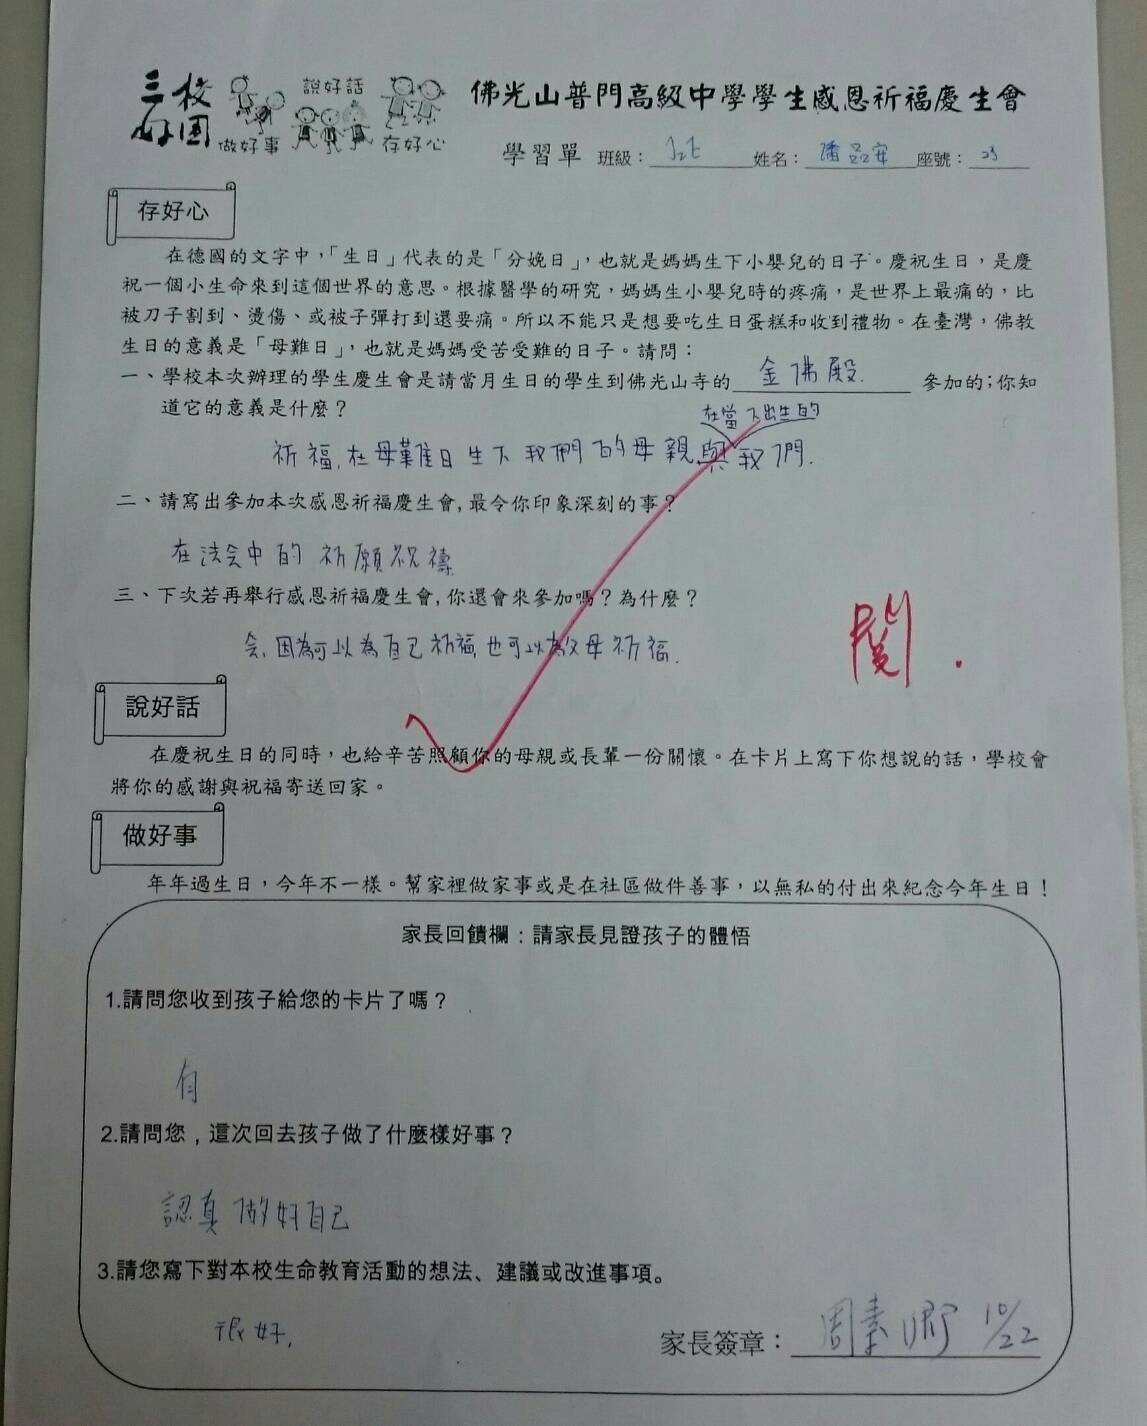 三好校園 做好事 說好話 存好心
佛光山普門高級中學學生感恩祈福慶生會
學習單 班級： 姓名：潘品安 座號：
存好心
在德國的文字中，「生日」代表的是「分娩日」，也就是媽媽生下小嬰兒的日子。慶祝生日，是慶
祝一個小生命來到這個世界的意思。根據醫學的研究，媽媽生小嬰兒時的疼痛，是世界上最痛的，比
被刀子割到、燙傷、或被子彈打到還要痛。所以不能只是想要吃生日蛋糕和收到禮物。在臺灣，佛教
生日的意義是「母難日」，也就是媽媽受苦受難的日子。請問：
一、學校本次辦理的學生慶生會是請當月生日的學生到佛光山寺的 金佛殿. 參加的；你知
道它的意義是什麼？
在當下出生的
祈福,在母難日生下我們的母親與我們.
二、請寫出參加本次感恩祈福慶生會,最令你印象深刻的事？
在法会中的祈願祝禱
三、下次若再舉行感恩祈福慶生會,你還會來參加嗎？為什麼？
会,因為可以為自己祈福,也可以為父母祈福.
閱.
說好話
在慶祝生日的同時，也給辛苦照顧你的母親或長輩一份關懷。在卡片上寫下你想說的話，學校會
將你的感謝與祝福寄送回家。
做好事
年年過生日，今年不一樣。幫家裡做家事或是在社區做件善事，以無私的付出來紀念今年生日！
家長回饋欄：請家長見證孩子的體悟
1.請問您收到孩子給您的卡片了嗎？
有
2.請問您，這次回去孩子做了什麼樣好事？
認真做好自己
3.請您寫下對本校生命教育活動的想法、建議或改進事項。
很好,
家長簽章：周素 10/22